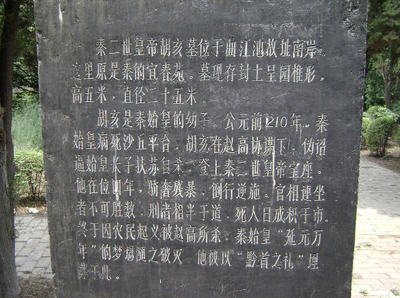 秦二世皇帝胡亥墓位于曲江池故址南岸。
这里原是秦的宜春苑。墓现存封土呈园椎形，
高五米，直径二十五米。
胡亥是秦始皇的幼子。公元前210年，秦
始皇病死沙丘平台，胡亥在赵高协谋下，伪诏
逼始皇长子扶苏自杀，登上秦二世皇帝宝座。
他在位四年，酷毒残暴，倒行逆施。官相连坐
者不可胜数，刑者相半于道，死人日成积于市，
终于因农民起义被赵高所杀。秦始皇“延元万
年”的梦想随之破灭，他被以“黔首之礼”埋
葬于此。